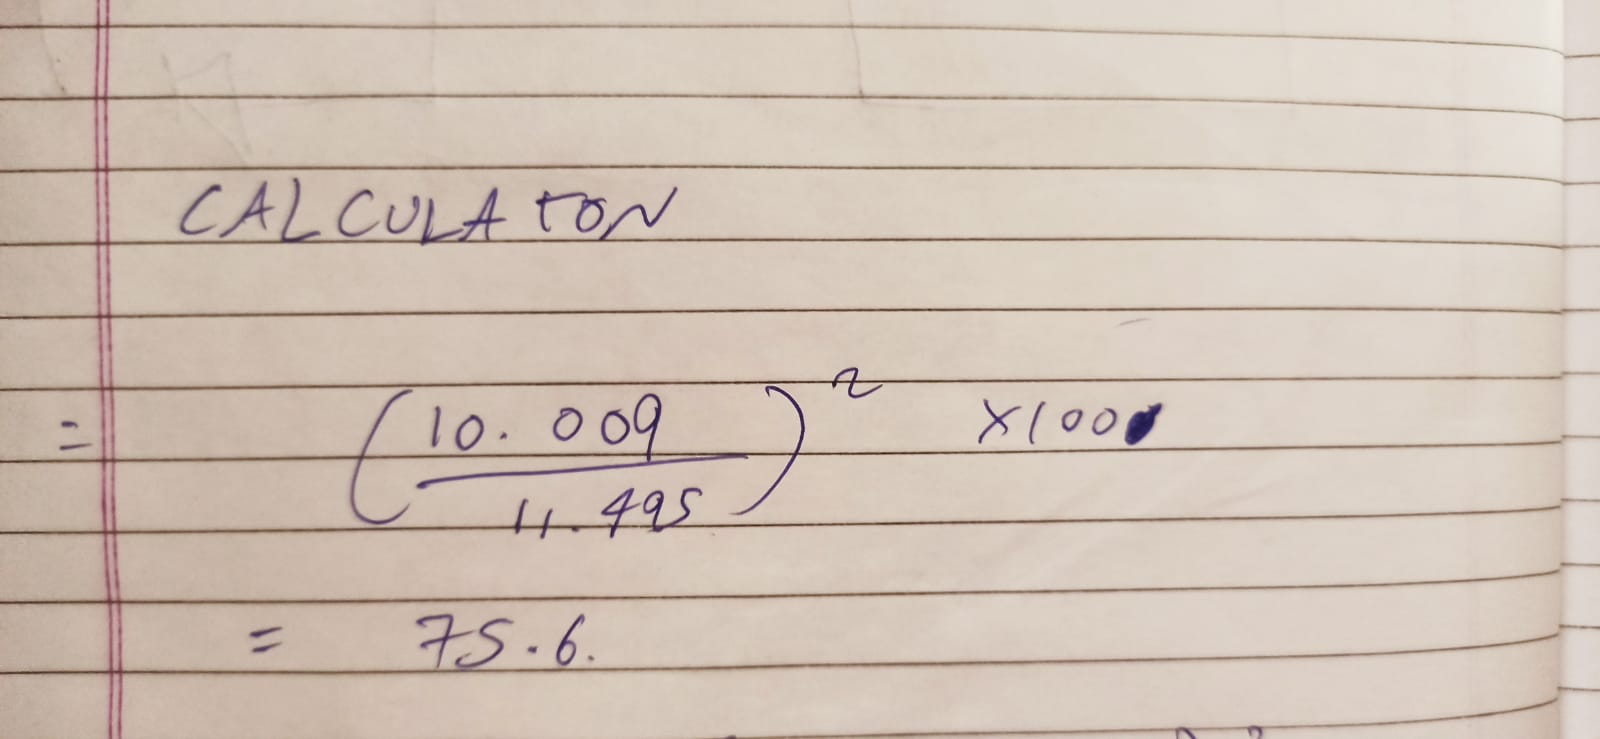 CALCULATON
= (10.009 / 11.495)² ×100
= 75.6.